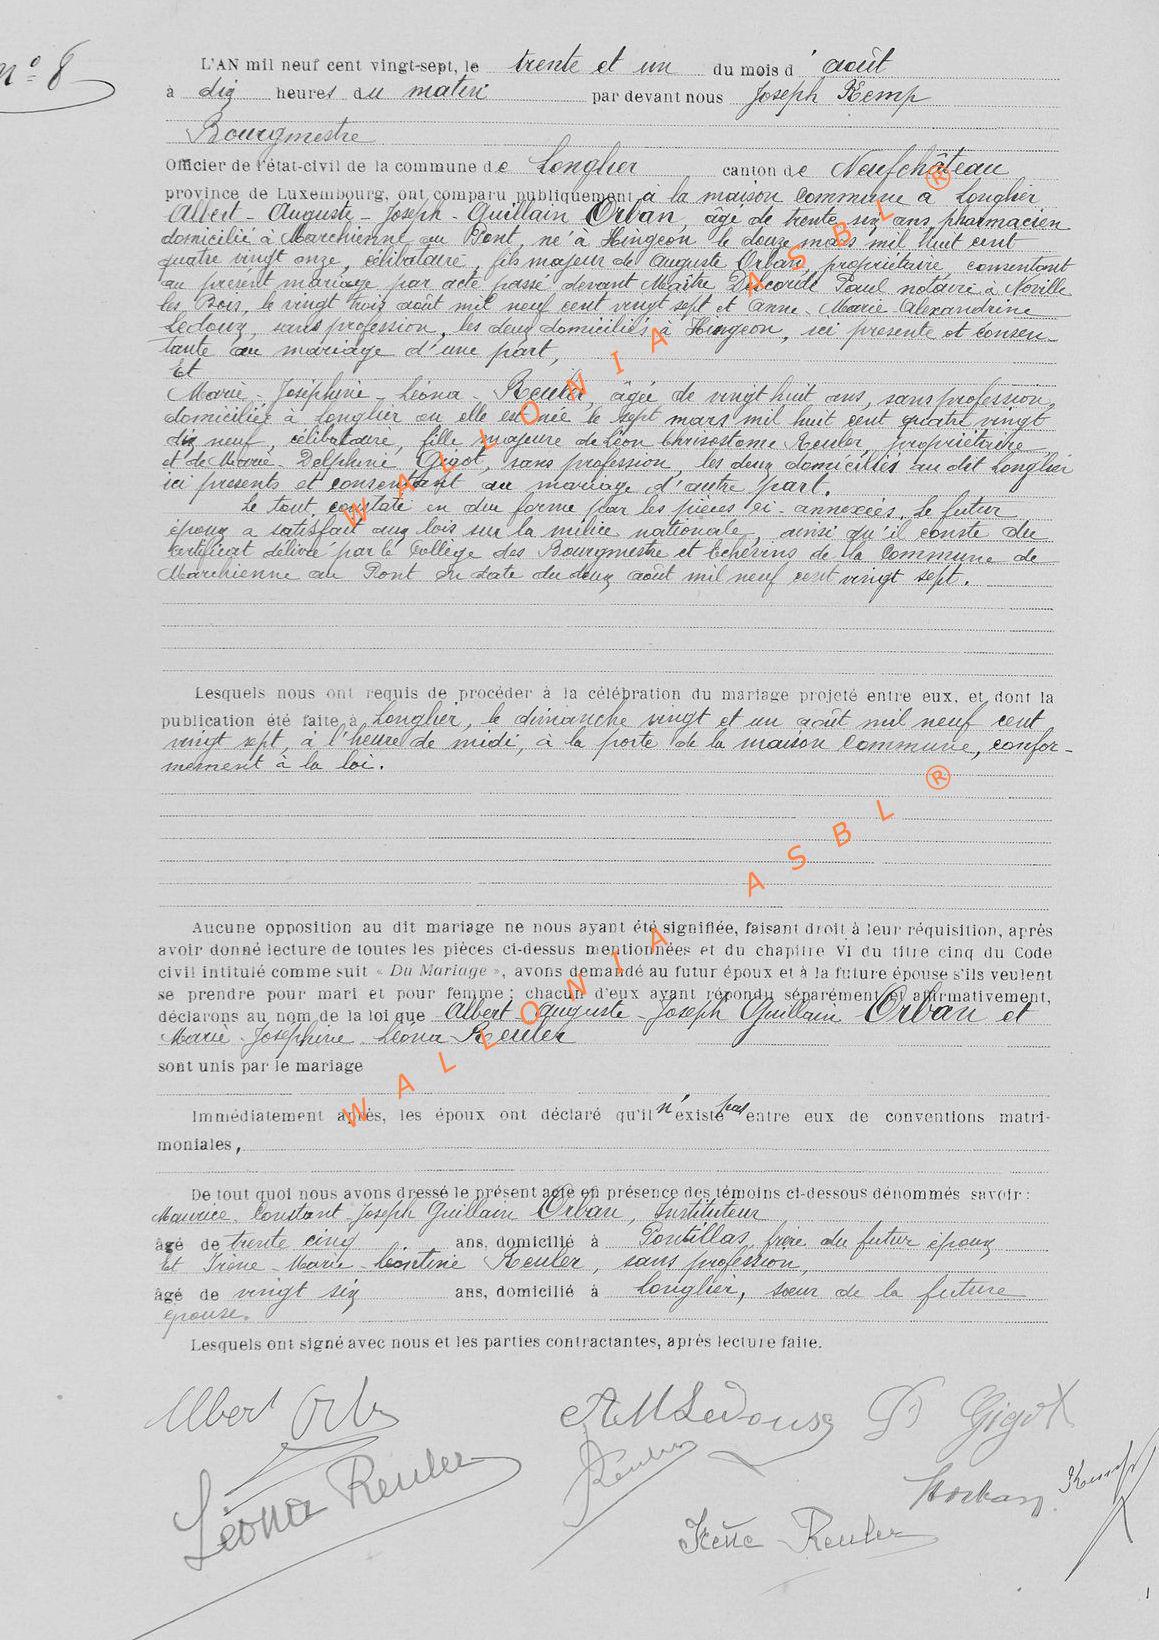 n° 8
L'AN mil neuf cent vingt-sept, le trente et un du mois d'août
à dix heures du matin par devant nous Joseph Kemp
Bourgmestre
Officier de l'état-civil de la commune de Longlier canton de Neufchâteau
province de Luxembourg, ont comparu publiquement à la maison Commune à Longlier
Albert - Auguste - Joseph - Guillain Orban, âgé de trente six ans, pharmacien
domicilié à Marchienne au Pont, né à Hingeon le douze mars mil huit cent
quatre vingt onze, célibataire, fils majeur de Auguste Orban, propriétaire, consentant
au présent mariage par acte passé devant Maître Paul notaire à Noville
les Bois, le vingt trois août mil neuf cent vingt sept et Anne - Marie - Alexandrine
Ledoux, sans profession, les deux domiciliés à Hingeon, ici présente et consen-
tante au mariage d'une part,
Et
Marie - Joséphine - Léona - Reuler, âgée de vingt huit ans, sans profession,
domiciliée à Longlier où elle est née le sept mars mil huit cent quatre vingt
dix neuf, célibataire, fille majeure de Léon Chrisostome Reuler, propriétaire,
et de Marie - Delphine Gigot, sans profession, les deux domiciliés au dit Longlier
ici présents et consentant au mariage d'autre part.
Le tout constaté en due forme par les pièces ci-annexées. Le futur
époux a satisfait aux lois sur la milice nationale, ainsi qu'il conste du
certificat délivré par le Collège des Bourgmestre et Echevins de la Commune de
Marchienne au Pont en date du deux août mil neuf cent vingt sept.
Lesquels nous ont requis de procéder à la célébration du mariage projeté entre eux, et dont la
publication été faite à Longlier, le dimanche vingt et un août mil neuf cent
vingt sept, à l'heure de midi, à la porte de la maison Commune, confor-
mément à la loi.
Aucune opposition au dit mariage ne nous ayant été signifiée, faisant droit à leur réquisition, après
avoir donné lecture de toutes les pièces ci-dessus mentionnées et du chapitre VI du titre cinq du Code
civil intitulé comme suit « Du Mariage », avons demandé au futur époux et à la future épouse s'ils veulent
se prendre pour mari et pour femme ; chacun d'eux ayant répondu séparément et affirmativement,
déclarons au nom de la loi que Albert - Auguste - Joseph Guillain Orban et
Marie - Joséphine - Léona Reuler
sont unis par le mariage
Immédiatement après, les époux ont déclaré qu'il n'existe pas entre eux de conventions matri-
moniales,
De tout quoi nous avons dressé le présent acte en présence des témoins ci-dessous dénommés savoir :
Maurice - Constant - Joseph Guillain Orban, Instituteur
âgé de trente cinq ans, domicilié à Pontillas, frère du futur époux
Et Irène - Marie - Léontine Reuler, sans profession,
âgé de vingt six ans, domicilié à Longlier, sœur de la future
épouse.
Lesquels ont signé avec nous et les parties contractantes, après lecture faite.
Albert Orban
AM Ledoux
D Gigot
Léona Reuler
Reuler
Kemp
Irène Reuler
WALLONIA ASBL ®
WALLONIA ASBL ®